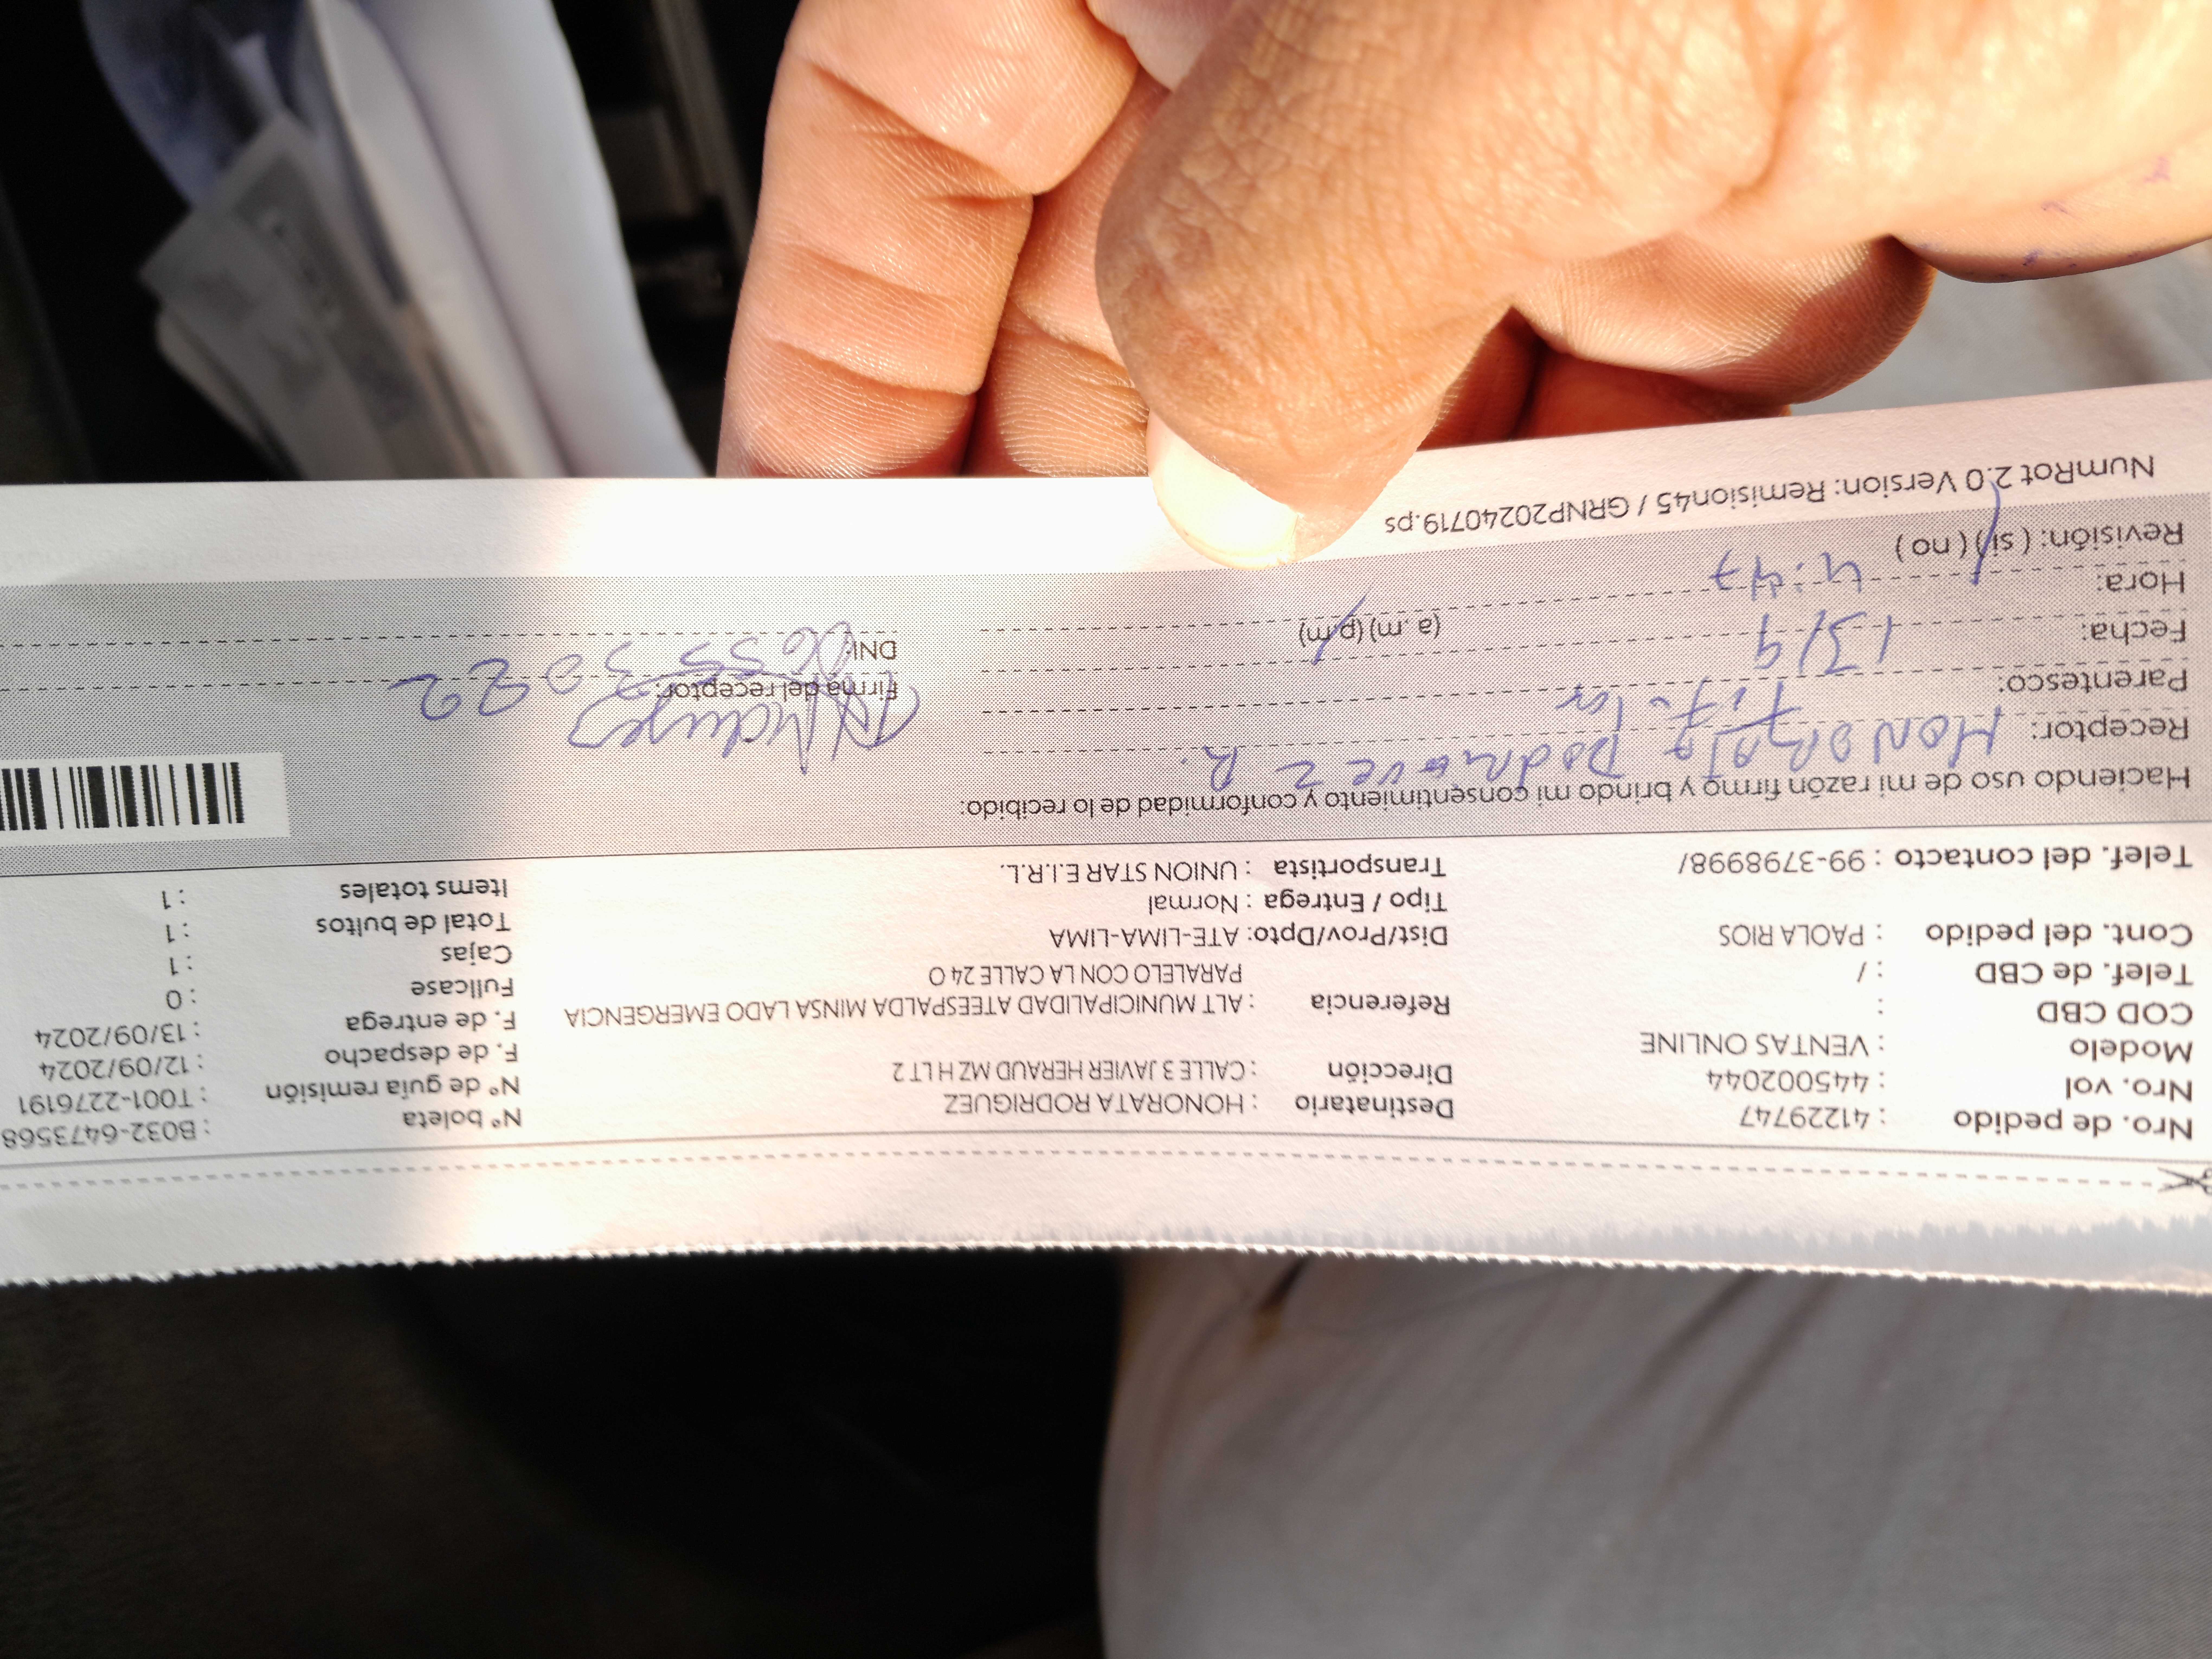 Nro. de pedido : 41229747
Nro. vol : 445002044
Modelo : VENTAS ONLINE
COD CBD :
Telef. de CBD : /
Cont. del pedido : PAOLA RIOS
Telef. del contacto : 99-3798998/
Destinatario : HONORATA RODRIGUEZ
Dirección : CALLE 3 JAVIER HERAUD MZ H LT 2
Referencia : ALT MUNICIPALIDAD ATEESPALDA MINSA LADO EMERGENCIA
PARALELO CON LA CALLE 24 O
Dist/Prov/Dpto: ATE-LIMA-LIMA
Tipo / Entrega : Normal
Transportista : UNION STAR E.I.R.L.
N° boleta : B032-6473568
N° de guía remisión : T001-2276191
F. de despacho : 12/09/2024
F. de entrega : 13/09/2024
Fullcase : 0
Cajas : 1
Total de bultos : 1
Items totales : 1
Haciendo uso de mi razón firmo y brindo mi consentimiento y conformidad de lo recibido:
Receptor: HONORATA R.
Parentesco:
Fecha: 13/9
Hora: 4:47 (a.m) (p.m)
Revisión: ( si ) ( no )
Firma del receptor:
DNI:
NumRot 2.0 Version: Remision45 / GRNP20240719.ps